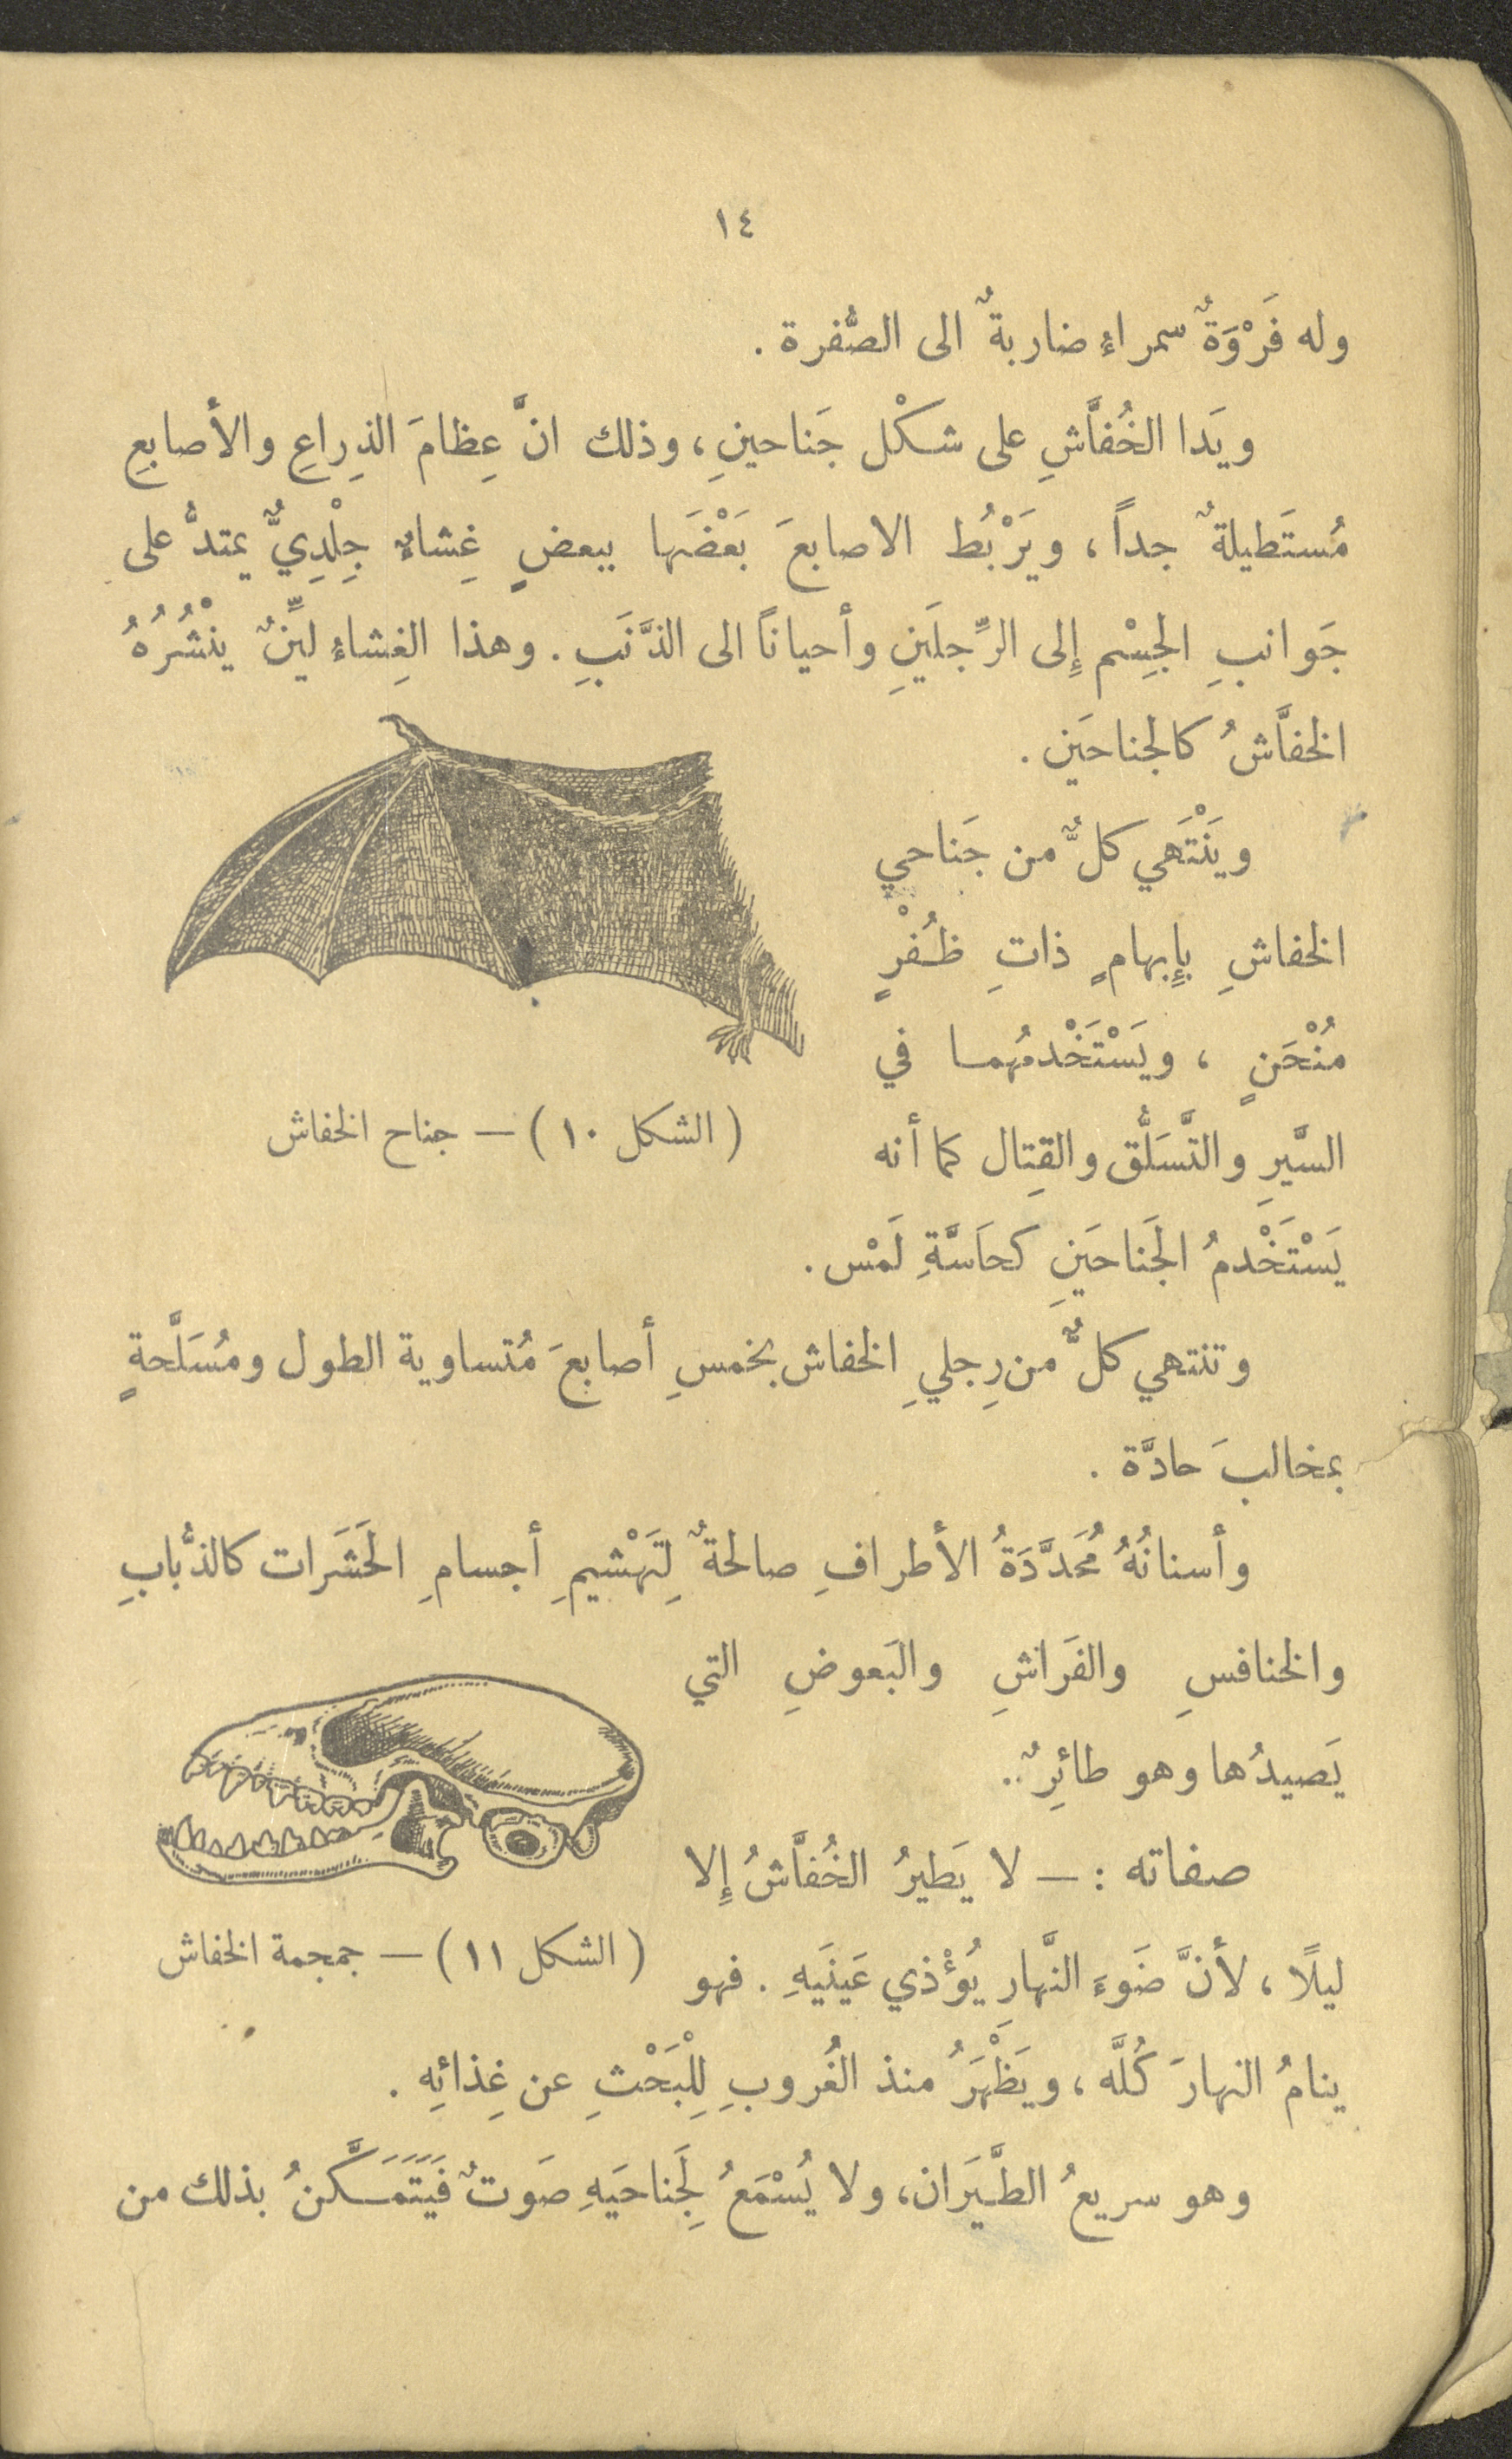 ١٤
وله فَرْوَةٌ سمراءُ ضاربةٌ الى الصُّفرة .
ويَدا الخُفاَّشِ على شكْل جَناحينِ، وذلك انَّ عِظامَ الذِراعِ والأصابعِ
مُستَطيلةٌ جداً، ويَرْبُط الاصابعَ بَعْضَها ببعضٍ غِشاءٌ جِلْدِيٌّ يمتدُّ على
جَوانبِ الجِسْم إِلى الرِّجلَينِ وأحياناً الى الذَّنَبِ . وهذا الغِشاءُ ليِّنٌ ينْشُرُهُ
الخفاَّشُ كالجناحَين .
ويَنْتَهي كلٌّ من جَناحي
الخفاشِ بإِبهامٍ ذاتِ ظُفْرٍ
مُنْحَنٍ ، ويَسْتَخْدمُهما في
السَّيرِ والتَّسَلُّق والقِتال كما أنه
يَسْتَخْدمُ الجَناحَينِ كَحاَسَّةِ لَمْس .
(الشكل ١٠) — جناح الخفاش
وتنتهي كلٌّ من رِجليِ الخفاش بخمسِ أصابعَ مُتساوية الطول ومُسَلَّحةٍ
بمخالبَ حادَّة .
وأسنانُهُ مُحَدَّدَةُ الأطرافِ صالحةٌ لِتَهْشيمِ أجسامِ الحَشَرات كالذُّبابِ
والخنافسِ والفَراشِ والبَعوضِ التي
يَصيدُها وهو طائرٌ ..
صفاته : — لا يَطيرُ الخُفاَّشُ إِلا
ليلًا، لأنَّ ضَوءَ النَّهارِ يُؤْذي عَينَيهِ . فهو
(الشكل ١١) — جمجمة الخفاش
ينامُ النهارَ كُلَّه، ويَظْهَرُ منذ الغُروبِ لِلْبَحْثِ عن غِذائهِ .
وهو سريعُ الطَّيَران، ولا يُسْمَعُ لِجَناحَيهِ صَوتٌ فَيَتَمَكَّنُ بذلك من